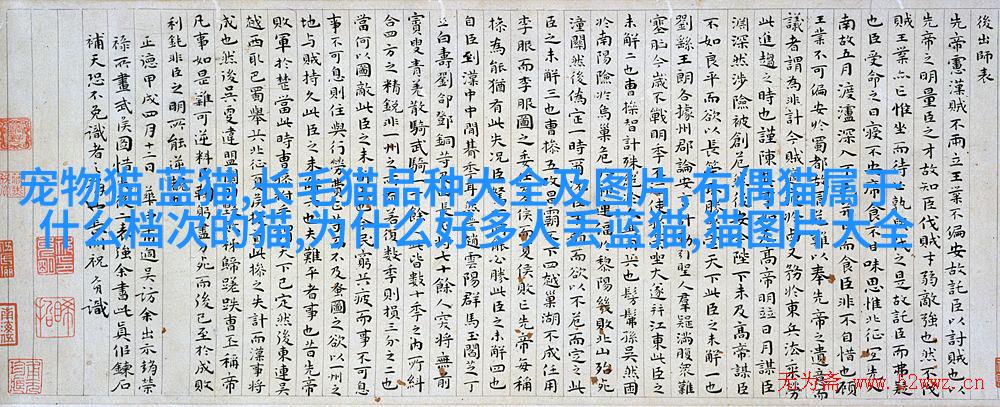 後出師表
先帝慮漢賊不兩立王業不偏安故託臣以討賊也以
先帝之明量臣之才故知臣伐賊才弱敵強也然不伐
賊王業亦亡惟坐而待亡孰與伐之是故託臣而弗疑
也臣受命之日寢不安席食不甘味思惟北征宜先入
南故五月渡瀘深入不毛并日而食臣非不自惜也顧
王業不可偏安於蜀都故冒危難以奉先帝之遺意而
議者謂為非計今賊適疲於西又務於東兵法乘勞
此進趨之時也謹陳其事如左高帝明並日月謀臣
淵深然涉險被創危然後安今陛下未及高帝謀臣
不如良平而欲以長策取勝坐定天下此臣之未解一也
劉繇王朗各據州郡論安言計動引聖人群疑滿腹衆難
塞胸今歲不戰明年不征使孫策坐大遂并江東此臣之
未解二也曹操智計殊絶於人其用兵也髣髴孫吳然困
於南陽險於烏巢危於祁連偪於黎陽幾敗北山殆死
潼關然後偽定一時爾況臣才弱而欲以不危而定之此
臣之未解三也曹操五攻昌霸不下四越巢湖不成任用
李服而李服圖之委任夏侯而夏侯敗亡先帝每稱
操為能猶有此失況臣駑下何能必勝此臣之未解四也
自臣到漢中中間朞年耳然喪趙雲陽群馬玉閻芝丁
立白壽劉郃鄧銅等及曲長屯將七十餘人突將無前
賨叟青羌散騎武騎一千餘人此皆數十年之內所糾
合四方之精銳非一州之所有若復數年則損三分之二也
當何以圖敵此臣之未解五也今民窮兵疲而事不可息
事不可息則住與行勞費正等而不及蚤圖之欲以一州之
地與賊持久此臣之未解六也夫難平者事也昔先帝
敗軍於楚當此時曹操拊手謂天下已定然後東連吳
越西取巴蜀舉兵北征夏侯授首此操之失計而漢事將
成也然後吳更違盟關羽毀敗秭歸蹉跌曹丕稱帝
凡事如是難可逆料臣鞠躬盡力死而後已至於成敗
利鈍非臣之明所能逆
正德甲戌四月十二日 過吳訪余出示
祿所畫武侯圖惜 強余書此真佀鍊石
補天恐不免識者 祝 識
宠物猫,蓝猫,长毛猫品种大全及图片,布偶猫属于
什么档次的猫,为什么好多人丢蓝猫,猫图片大全
无为斋 www.52wwz.cn